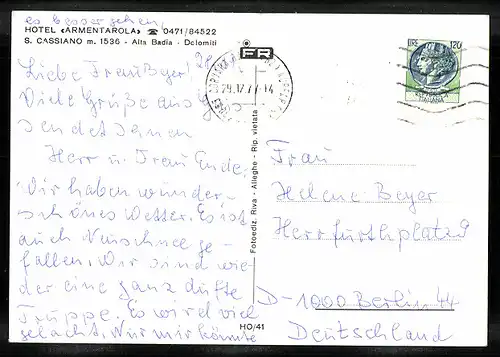 es besser gehen,
HOTEL «ARMENTAROLA» ☎ 0471/84522
S. CASSIANO m. 1536 - Alta Badia - Dolomiti
Liebe Frau Beyer!
Viele Grüße aus
senden Ihnen
Herr u. Frau Ende.
Wir haben wunder-
schönes Wetter. Es ist
auch Neuschnee ge-
fallen. Wir sind wie-
der eine ganz dufte
Truppe. Es wird viel
gelacht. Nur mir könnte
FR
Fotoediz. Riva - Alleghe - Rip. vietata
HO/41
29.12.77-14
LIRE 120
ITALIANA
Frau
Helene Beyer
Herrfurthplatz 9
D-1000 Berlin 44
Deutschland